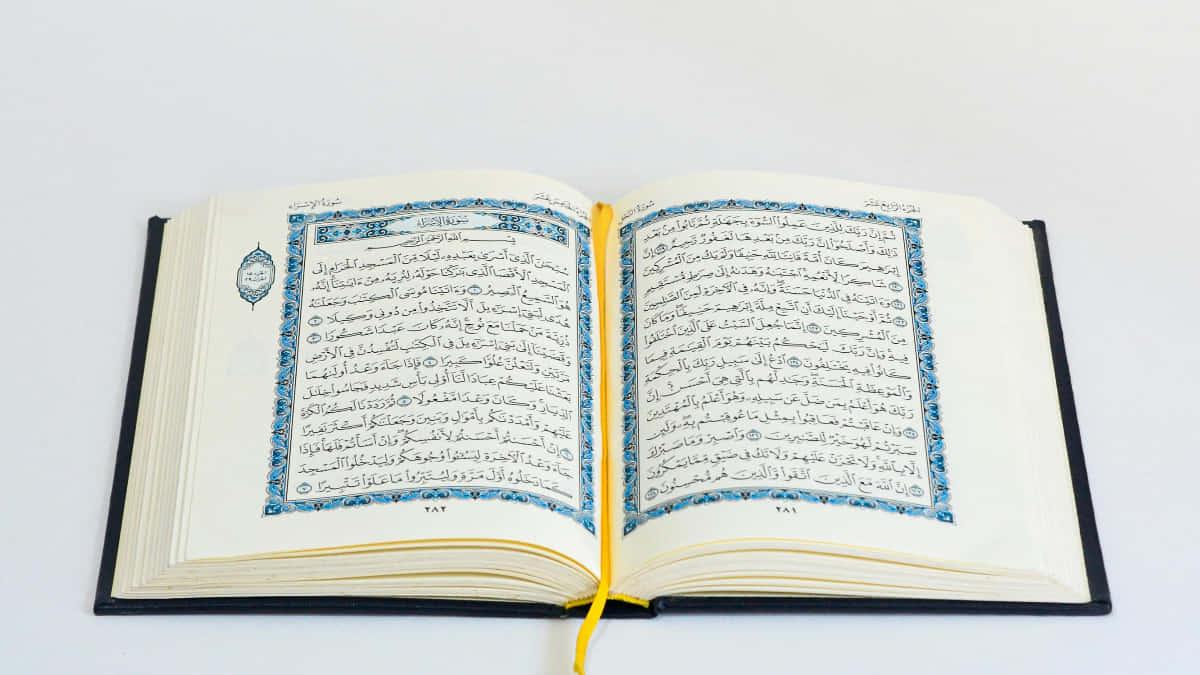 سُورَةُ النَّحْلِ
الجُزْءُ الرَّابِعَ عَشَرَ
ثُمَّ إِنَّ رَبَّكَ لِلَّذِينَ عَمِلُوا۟ ٱلسُّوٓءَ بِجَهَٰلَةٍ ثُمَّ تَابُوا۟ مِنۢ بَعْدِ
ذَٰلِكَ وَأَصْلَحُوٓا۟ إِنَّ رَبَّكَ مِنۢ بَعْدِهَا لَغَفُورٌ رَّحِيمٌ ١١٩ إِنَّ
إِبْرَٰهِيمَ كَانَ أُمَّةً قَانِتًا لِّلَّهِ حَنِيفًا وَلَمْ يَكُ مِنَ ٱلْمُشْرِكِينَ
١٢٠ شَاكِرًا لِّأَنْعُمِهِ ٱجْتَبَىٰهُ وَهَدَىٰهُ إِلَىٰ صِرَٰطٍ مُّسْتَقِيمٍ
١٢١ وَءَاتَيْنَٰهُ فِى ٱلدُّنْيَا حَسَنَةً وَإِنَّهُۥ فِى ٱلْءَاخِرَةِ لَمِنَ ٱلصَّٰلِحِينَ
١٢٢ ثُمَّ أَوْحَيْنَآ إِلَيْكَ أَنِ ٱتَّبِعْ مِلَّةَ إِبْرَٰهِيمَ حَنِيفًا وَمَا كَانَ
مِنَ ٱلْمُشْرِكِينَ ١٢٣ إِنَّمَا جُعِلَ ٱلسَّبْتُ عَلَى ٱلَّذِينَ ٱخْتَلَفُوا۟
فِيهِ وَإِنَّ رَبَّكَ لَيَحْكُمُ بَيْنَهُمْ يَوْمَ ٱلْقِيَٰمَةِ فِيمَا
كَانُوا۟ فِيهِ يَخْتَلِفُونَ ١٢٤ ٱدْعُ إِلَىٰ سَبِيلِ رَبِّكَ بِٱلْحِكْمَةِ
وَٱلْمَوْعِظَةِ ٱلْحَسَنَةِ وَجَٰدِلْهُم بِٱلَّتِى هِىَ أَحْسَنُ إِنَّ
رَبَّكَ هُوَ أَعْلَمُ بِمَن ضَلَّ عَن سَبِيلِهِۦ وَهُوَ أَعْلَمُ بِٱلْمُهْتَدِينَ
١٢٥ وَإِنْ عَاقَبْتُمْ فَعَاقِبُوا۟ بِمِثْلِ مَا عُوقِبْتُم بِهِۦ وَلَئِن
صَبَرْتُمْ لَهُوَ خَيْرٌ لِّلصَّٰبِرِينَ ١٢٦ وَٱصْبِرْ وَمَا صَبْرُكَ
إِلَّا بِٱللَّهِ وَلَا تَحْزَنْ عَلَيْهِمْ وَلَا تَكُ فِى ضَيْقٍ مِّمَّا يَمْكُرُونَ
١٢٧ إِنَّ ٱللَّهَ مَعَ ٱلَّذِينَ ٱتَّقَوا۟ وَّٱلَّذِينَ هُم مُّحْسِنُونَ ١٢٨
٢٨١
الجُزْءُ الخَامِسَ عَشَرَ
سُورَةُ الإِسْرَاءِ
سُورَةُ الإِسْرَاءِ
بِسْمِ ٱللَّهِ ٱلرَّحْمَٰنِ ٱلرَّحِيمِ
سُبْحَٰنَ ٱلَّذِىٓ أَسْرَىٰ بِعَبْدِهِۦ لَيْلًا مِّنَ ٱلْمَسْجِدِ ٱلْحَرَامِ إِلَى
ٱلْمَسْجِدِ ٱلْأَقْصَا ٱلَّذِى بَٰرَكْنَا حَوْلَهُۥ لِنُرِيَهُۥ مِنْ ءَايَٰتِنَآ إِنَّهُۥ
هُوَ ٱلسَّمِيعُ ٱلْبَصِيرُ ١ وَءَاتَيْنَا مُوسَى ٱلْكِتَٰبَ وَجَعَلْنَٰهُ
هُدًى لِّبَنِىٓ إِسْرَٰٓءِيلَ أَلَّا تَتَّخِذُوا۟ مِن دُونِى وَكِيلًا ٢
ذُرِّيَّةَ مَنْ حَمَلْنَا مَعَ نُوحٍ إِنَّهُۥ كَانَ عَبْدًا شَكُورًا ٣
وَقَضَيْنَآ إِلَىٰ بَنِىٓ إِسْرَٰٓءِيلَ فِى ٱلْكِتَٰبِ لَتُفْسِدُنَّ فِى ٱلْأَرْضِ
مَرَّتَيْنِ وَلَتَعْلُنَّ عُلُوًّا كَبِيرًا ٤ فَإِذَا جَآءَ وَعْدُ أُولَىٰهُمَا
بَعَثْنَا عَلَيْكُمْ عِبَادًا لَّنَآ أُو۟لِى بَأْسٍ شَدِيدٍ فَجَاسُوا۟ خِلَٰلَ
ٱلدِّيَارِ وَكَانَ وَعْدًا مَّفْعُولًا ٥ ثُمَّ رَدَدْنَا لَكُمُ ٱلْكَرَّةَ
عَلَيْهِمْ وَأَمْدَدْنَٰكُم بِأَمْوَٰلٍ وَبَنِينَ وَجَعَلْنَٰكُمْ أَكْثَرَ نَفِيرًا
٦ إِنْ أَحْسَنتُمْ أَحْسَنتُمْ لِأَنفُسِكُمْ وَإِنْ أَسَأْتُمْ فَلَهَا فَإِذَا
جَآءَ وَعْدُ ٱلْءَاخِرَةِ لِيَسُۥٓـُٔوا۟ وُجُوهَكُمْ وَلِيَدْخُلُوا۟ ٱلْمَسْجِدَ
كَمَا دَخَلُوهُ أَوَّلَ مَرَّةٍ وَلِيُتَبِّرُوا۟ مَا عَلَوْا۟ تَتْبِيرًا ٧
٢٨٢